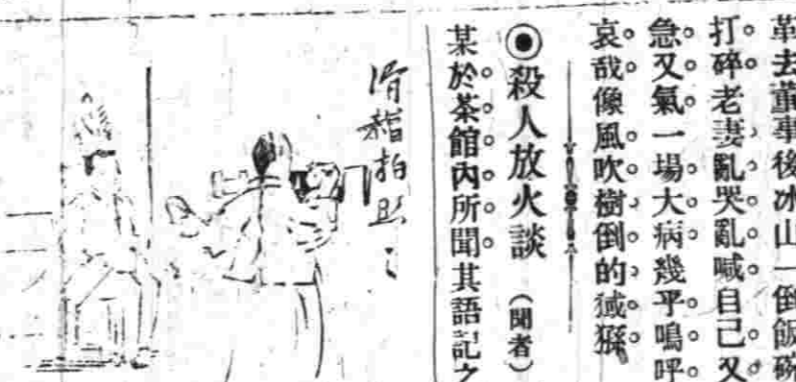 革去董事後冰山一倒飯碗
打碎老妻亂哭亂喊自己又
急又氣一場大病幾乎嗚呼
哀哉像風吹樹倒的猢猻
◉殺人放火談(聞者)
某於茶館內所聞其語記之
滑稽拍照